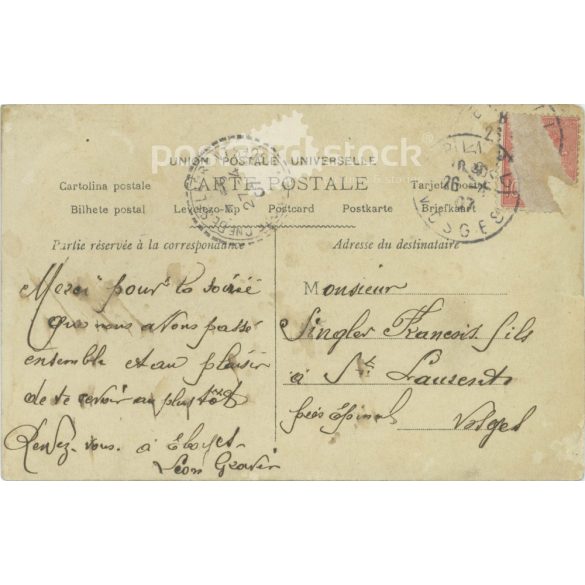 postcardstock
UNION POSTALE UNIVERSELLE
CARTE POSTALE
Cartolina postale
Tarjeta postal
Bilhete postal Levelezo-Lap Postcard Postkarte Briefkaart
Partie réservée à la correspondance
Adresse du destinataire
Merci pour la soirée
que nous avons passé
ensemble et au plaisir
de te revoir au plus tôt
Rendez-vous à Eloyes
Léon
Monsieur
Singler Francois fils
à St Laurent
près Epinal Vosges
VOSGES